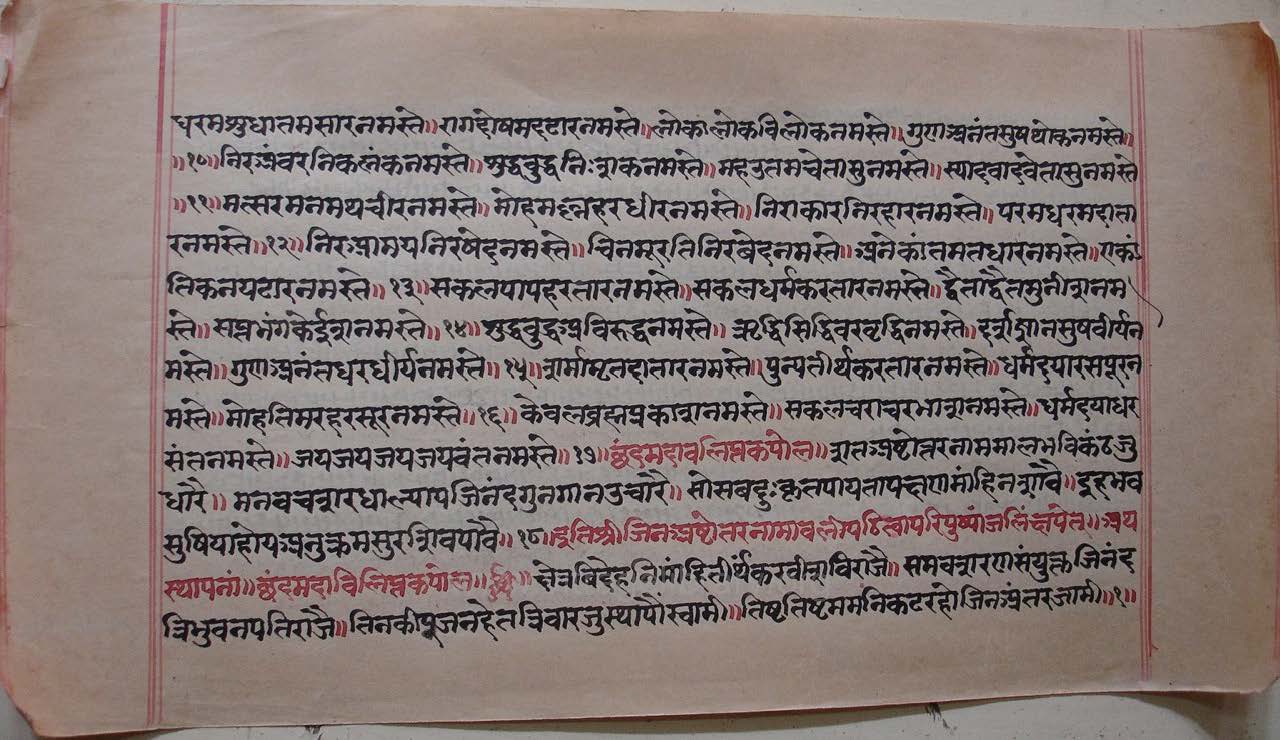 परमअध्यातमसारनमस्ते॥ रागदोषमदटारनमस्ते॥ लोकालोकविलोकनमस्ते॥ गुणअनंतसुषथोकनमस्ते॥
॥१०॥ निरअंबरनिकलंकनमस्ते॥ शुद्धबुद्धनिःशाकनमस्ते॥ महउतमचेतासुनमस्ते॥ स्यादवादवेतासुनमस्ते
॥११॥ मत्सरमनमथचीरनमस्ते॥ मोहमल्लहरधीरनमस्ते॥ निराकारनिरहारनमस्ते॥ परमधरमदाता
रनमस्ते॥१२॥ निरआमयनिरषेदनमस्ते॥ चिनमूरतिनिरबेदनमस्ते॥ अनेकांतमतधारनमस्ते॥ एकां
तिकनयटारनमस्ते॥१३॥ सकलपापहरतारनमस्ते॥ सकलधर्मकरतारनमस्ते॥ द्वैताद्वैतमुनीशनम
स्ते॥ सप्तभंगकेईशनमस्ते॥१४॥ शुद्धबुद्धअविरूद्धनमस्ते॥ ऋद्धिसिद्धिवरवृद्धिनमस्ते॥ दर्शज्ञानसुषवीर्यन
मस्ते॥ गुणअनंतधरधीर्यनमस्ते॥१५॥ शर्मामृतदातारनमस्ते॥ पुन्यतीर्थकरतारनमस्ते॥ धर्मदयारसपूरन
मस्ते॥ मोहतिमरहरसूरनमस्ते॥१६॥ केवलब्रह्मप्रकाशनमस्ते॥ सकलचराचरभाशनमस्ते॥ धर्मदयाधर
संतनमस्ते॥ जयजयजयजयवंतनमस्ते॥१७॥ छंदमदावलिप्तकपोल॥ शतअष्टोत्तरनाममालभविकंठजु
धारै॥ मनवचशरधाल्यापजिनंदगुनगानउचारै॥ सोसबदुःकृतपायतापक्षणमांहिनशावै॥ इहभव
सुषियाहोयअनुक्रमसुरशिवपावै॥१८॥ इतिश्रीजिनअष्टोतरनामावलीपठित्वापरिपुष्पांजलिंक्षपेत॥ अथ
स्थापनां॥ छंदमदाविलिप्तकपोल॥ क्षेत्रबिदेहनिमांहितीर्थंकरवीशविराजै॥ समवशरणसंयुक्तजिनंद
त्रिभुवनपतिराजै॥ तिनकीपूजनहेतत्रिवारजुस्थापौंस्वामी॥ तिष्टतिष्टममनिकटरहोजिनअंतरजामी॥१॥